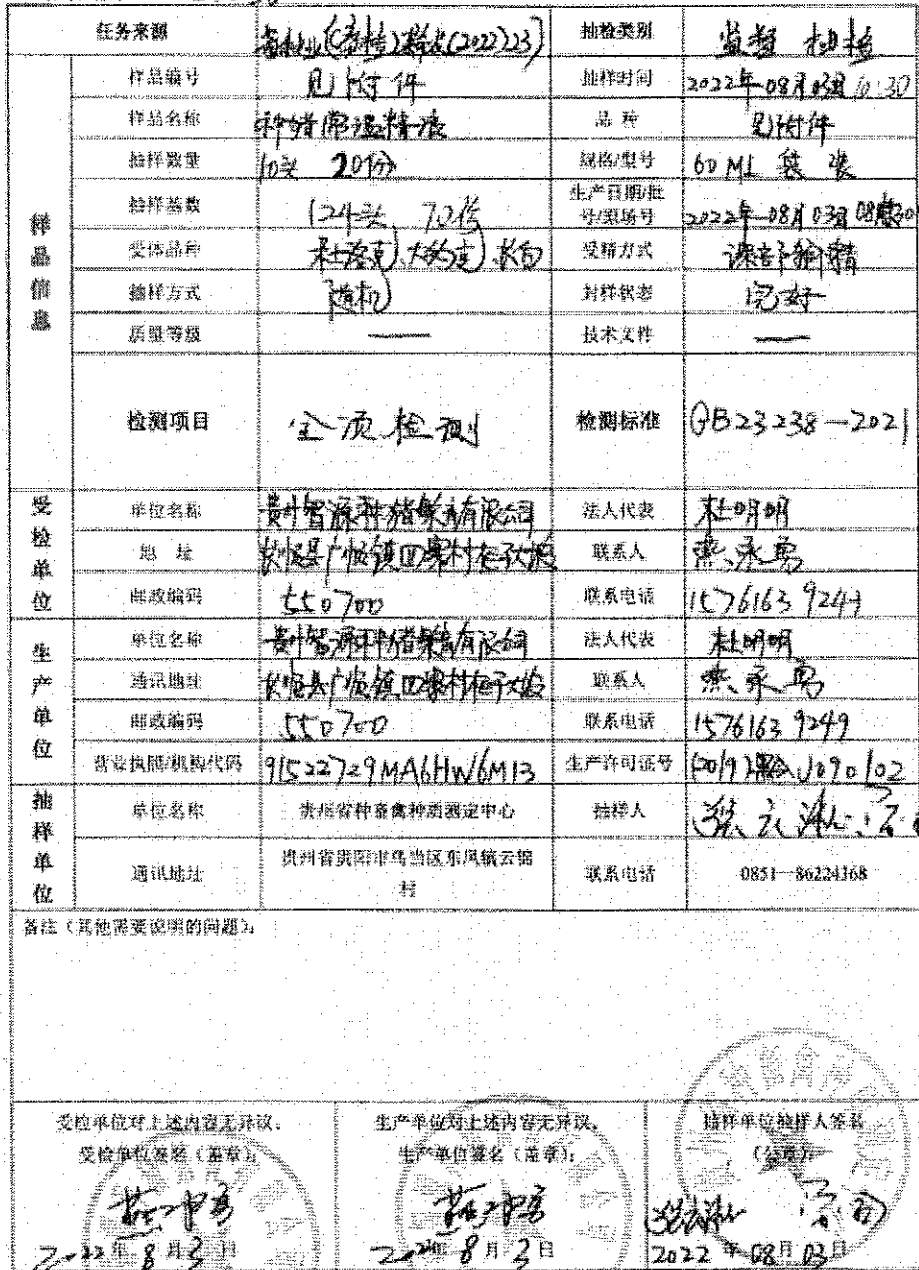 任务来源 抽检类别 监督抽检
样品信息
样品编号 见附件 抽样时间 2022年08月03日 10:30
样品名称 种猪常温精液 品种 见附件
抽样数量 10头 20份 规格/型号 60ML 袋装
抽样基数 124头 70份 生产日期/批号/
2022年08月03日
受体品种 杜洛克、大约克、长白 受精方式 深部输精
抽样方式 随机 封样状态 完好
质量等级 — 技术文件 —
检测项目 全项检测 检测标准 GB23238—2021
受检单位
单位名称 贵州智源种猪集育有限公司 法人代表 杜明明
地址 长顺县广顺镇四寨村 联系人 燕永勇
邮政编码 550700 联系电话 15761639249
生产单位
单位名称 贵州智源种猪集育有限公司 法人代表 杜明明
通讯地址 长顺县广顺镇四寨村 联系人 燕永勇
邮政编码 550700 联系电话 15761639249
营业执照/机构代码 91522729MA6HW6M13 生产许可证号 (2019) J090102
抽样单位
单位名称 贵州省种畜禽种质测定中心 抽样人
通讯地址 贵州省贵阳市乌当区东风镇云锦村 联系电话 0851—86224368
备注(其他需要说明的问题):
受检单位对上述内容无异议。
受检单位签名(盖章):
2022年8月3日
生产单位对上述内容无异议。
生产单位签名(盖章):
2022年8月3日
抽样单位抽样人签名
(公章):
2022年08月03日